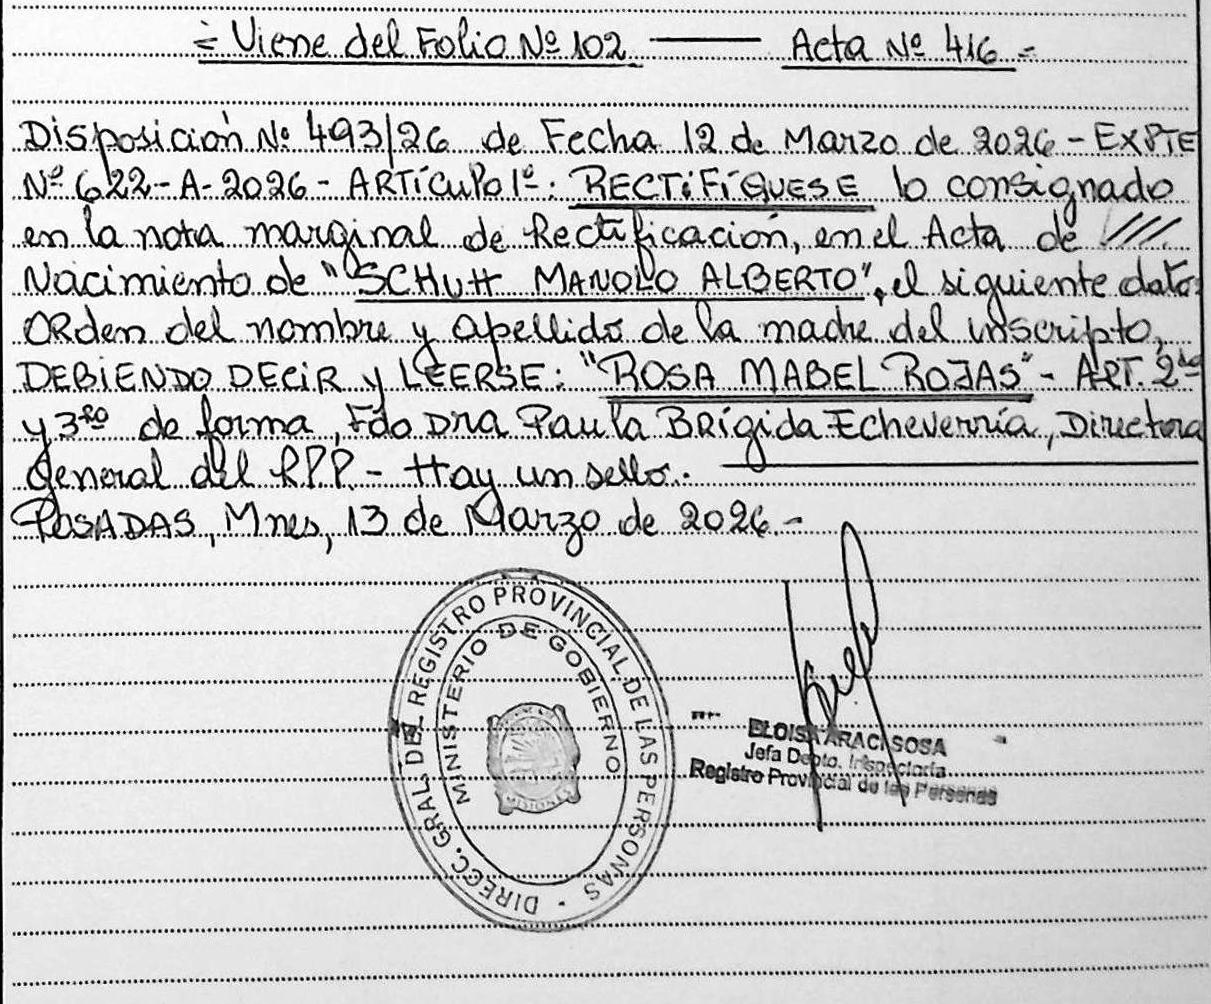 = Viene del Folio Nº 102 ——— Acta Nº 416 =
Disposición Nº 493/26 de Fecha 12 de Marzo de 2026 - EXPTE
Nº 622-A-2026 - ARTÍCULO 1º: RECTIFÍQUESE lo consignado
en la nota marginal de Rectificación, en el Acta de ////
Nacimiento de "SCHUTT MANOLO ALBERTO", el siguiente dato:
ORden del nombre y apellido de la madre del inscripto,
DEBIENDO DECIR y LEERSE: "ROSA MABEL ROJAS" - ART. 2do
y 3ro de forma, Fdo Dra Paula BRígida Echeverría, Directora
General del R.P.P. - Hay un sello.
POSADAS, Mnes, 13 de Marzo de 2026.-
DIRECC. GRAL. DEL REGISTRO PROVINCIAL DE LAS PERSONAS
MINISTERIO DE GOBIERNO
MISIONES
ELOISA ARACI SOSA
Jefa Depto. Inspectoría
Registro Provincial de las Personas